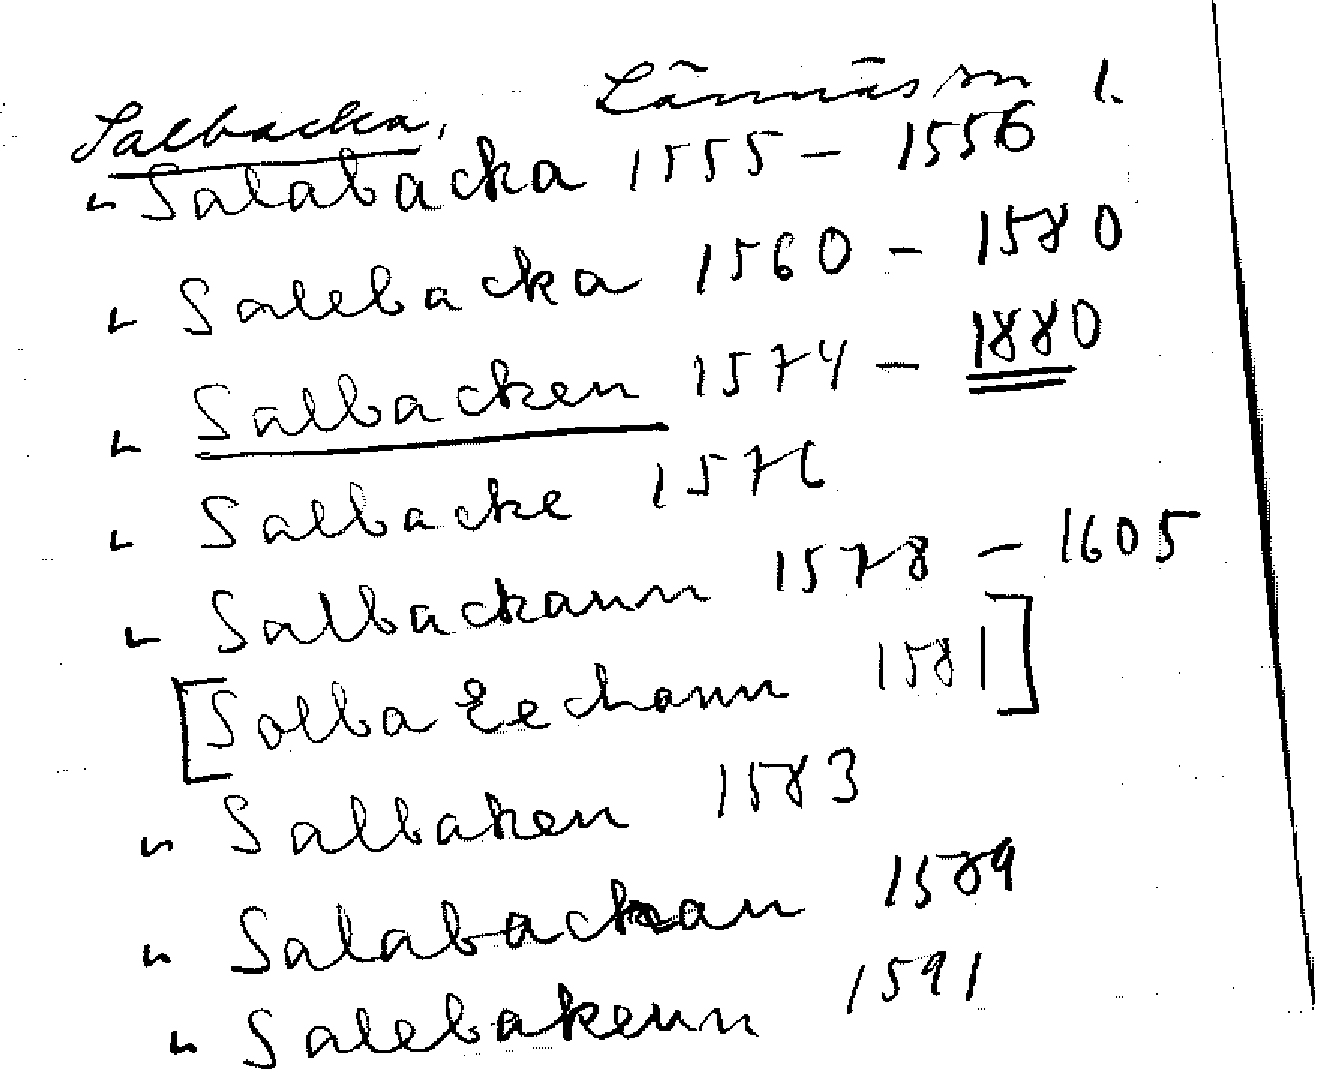 Salbacka, Lännäs sn 1.
" Salabacka 1555 – 1556
" Salebacka 1560 – 1580
" Salbacken 1574 – 1880
" Salbacke 1576
" Salbackann 1578 – 1605
[Solba Eechann 1581]
" Salbaken 1583
" Salabackan 1589
" Salebakenn 1591